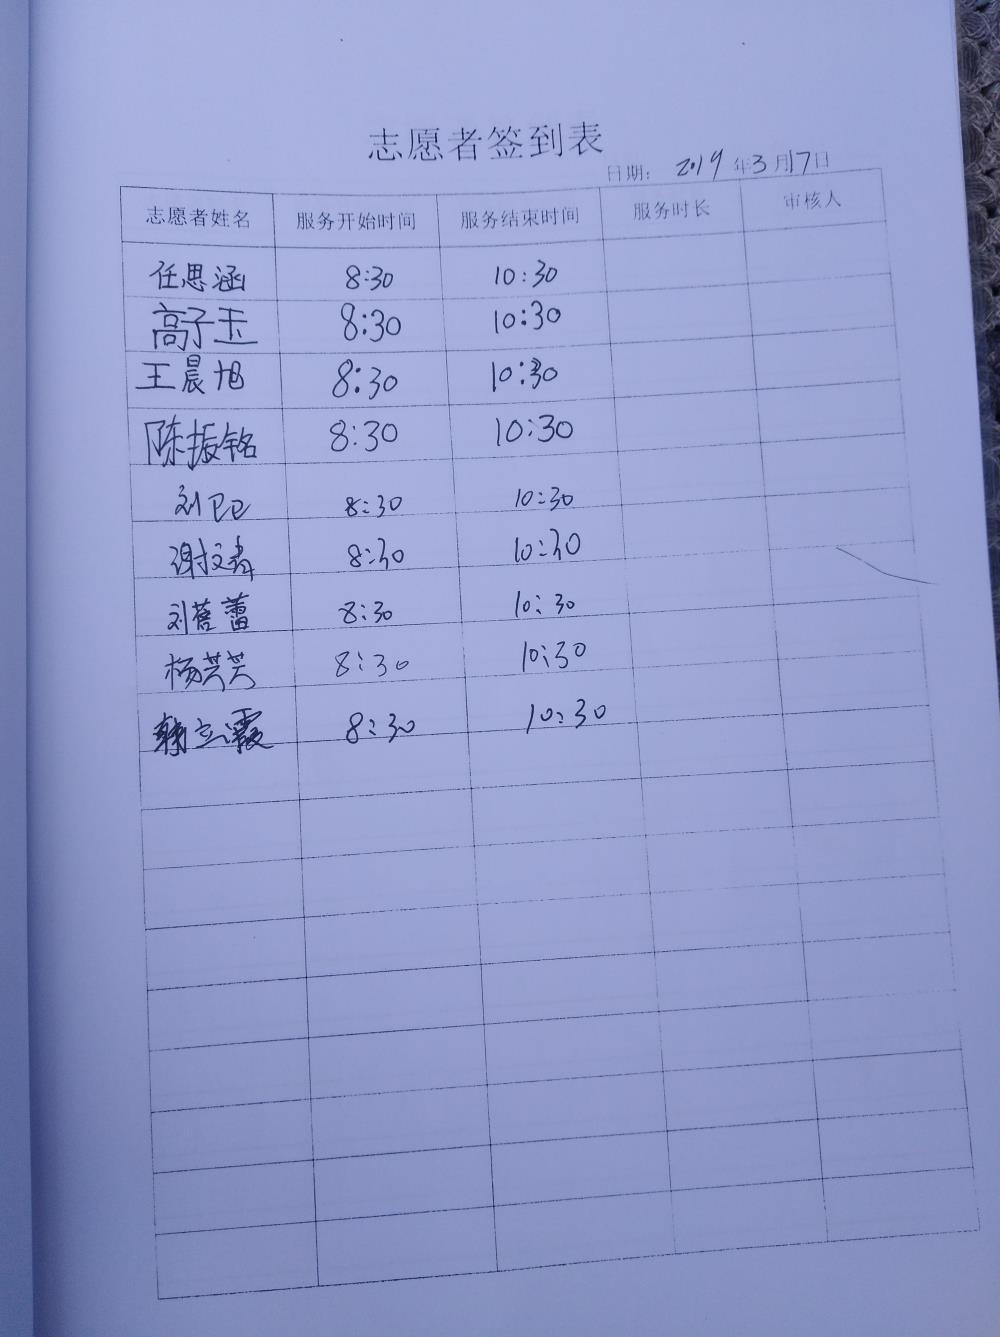 志愿者签到表
日期: 2019 年 3 月 17 日
志愿者姓名 服务开始时间 服务结束时间 服务时长 审核人
任思涵 8:30 10:30
高子玉 8:30 10:30
王晨旭 8:30 10:30
陈振铭 8:30 10:30
刘 8:30 10:30
谢 8:30 10:30
刘蕾 8:30 10:30
杨芙芙 8:30 10:30
韩立霞 8:30 10:30